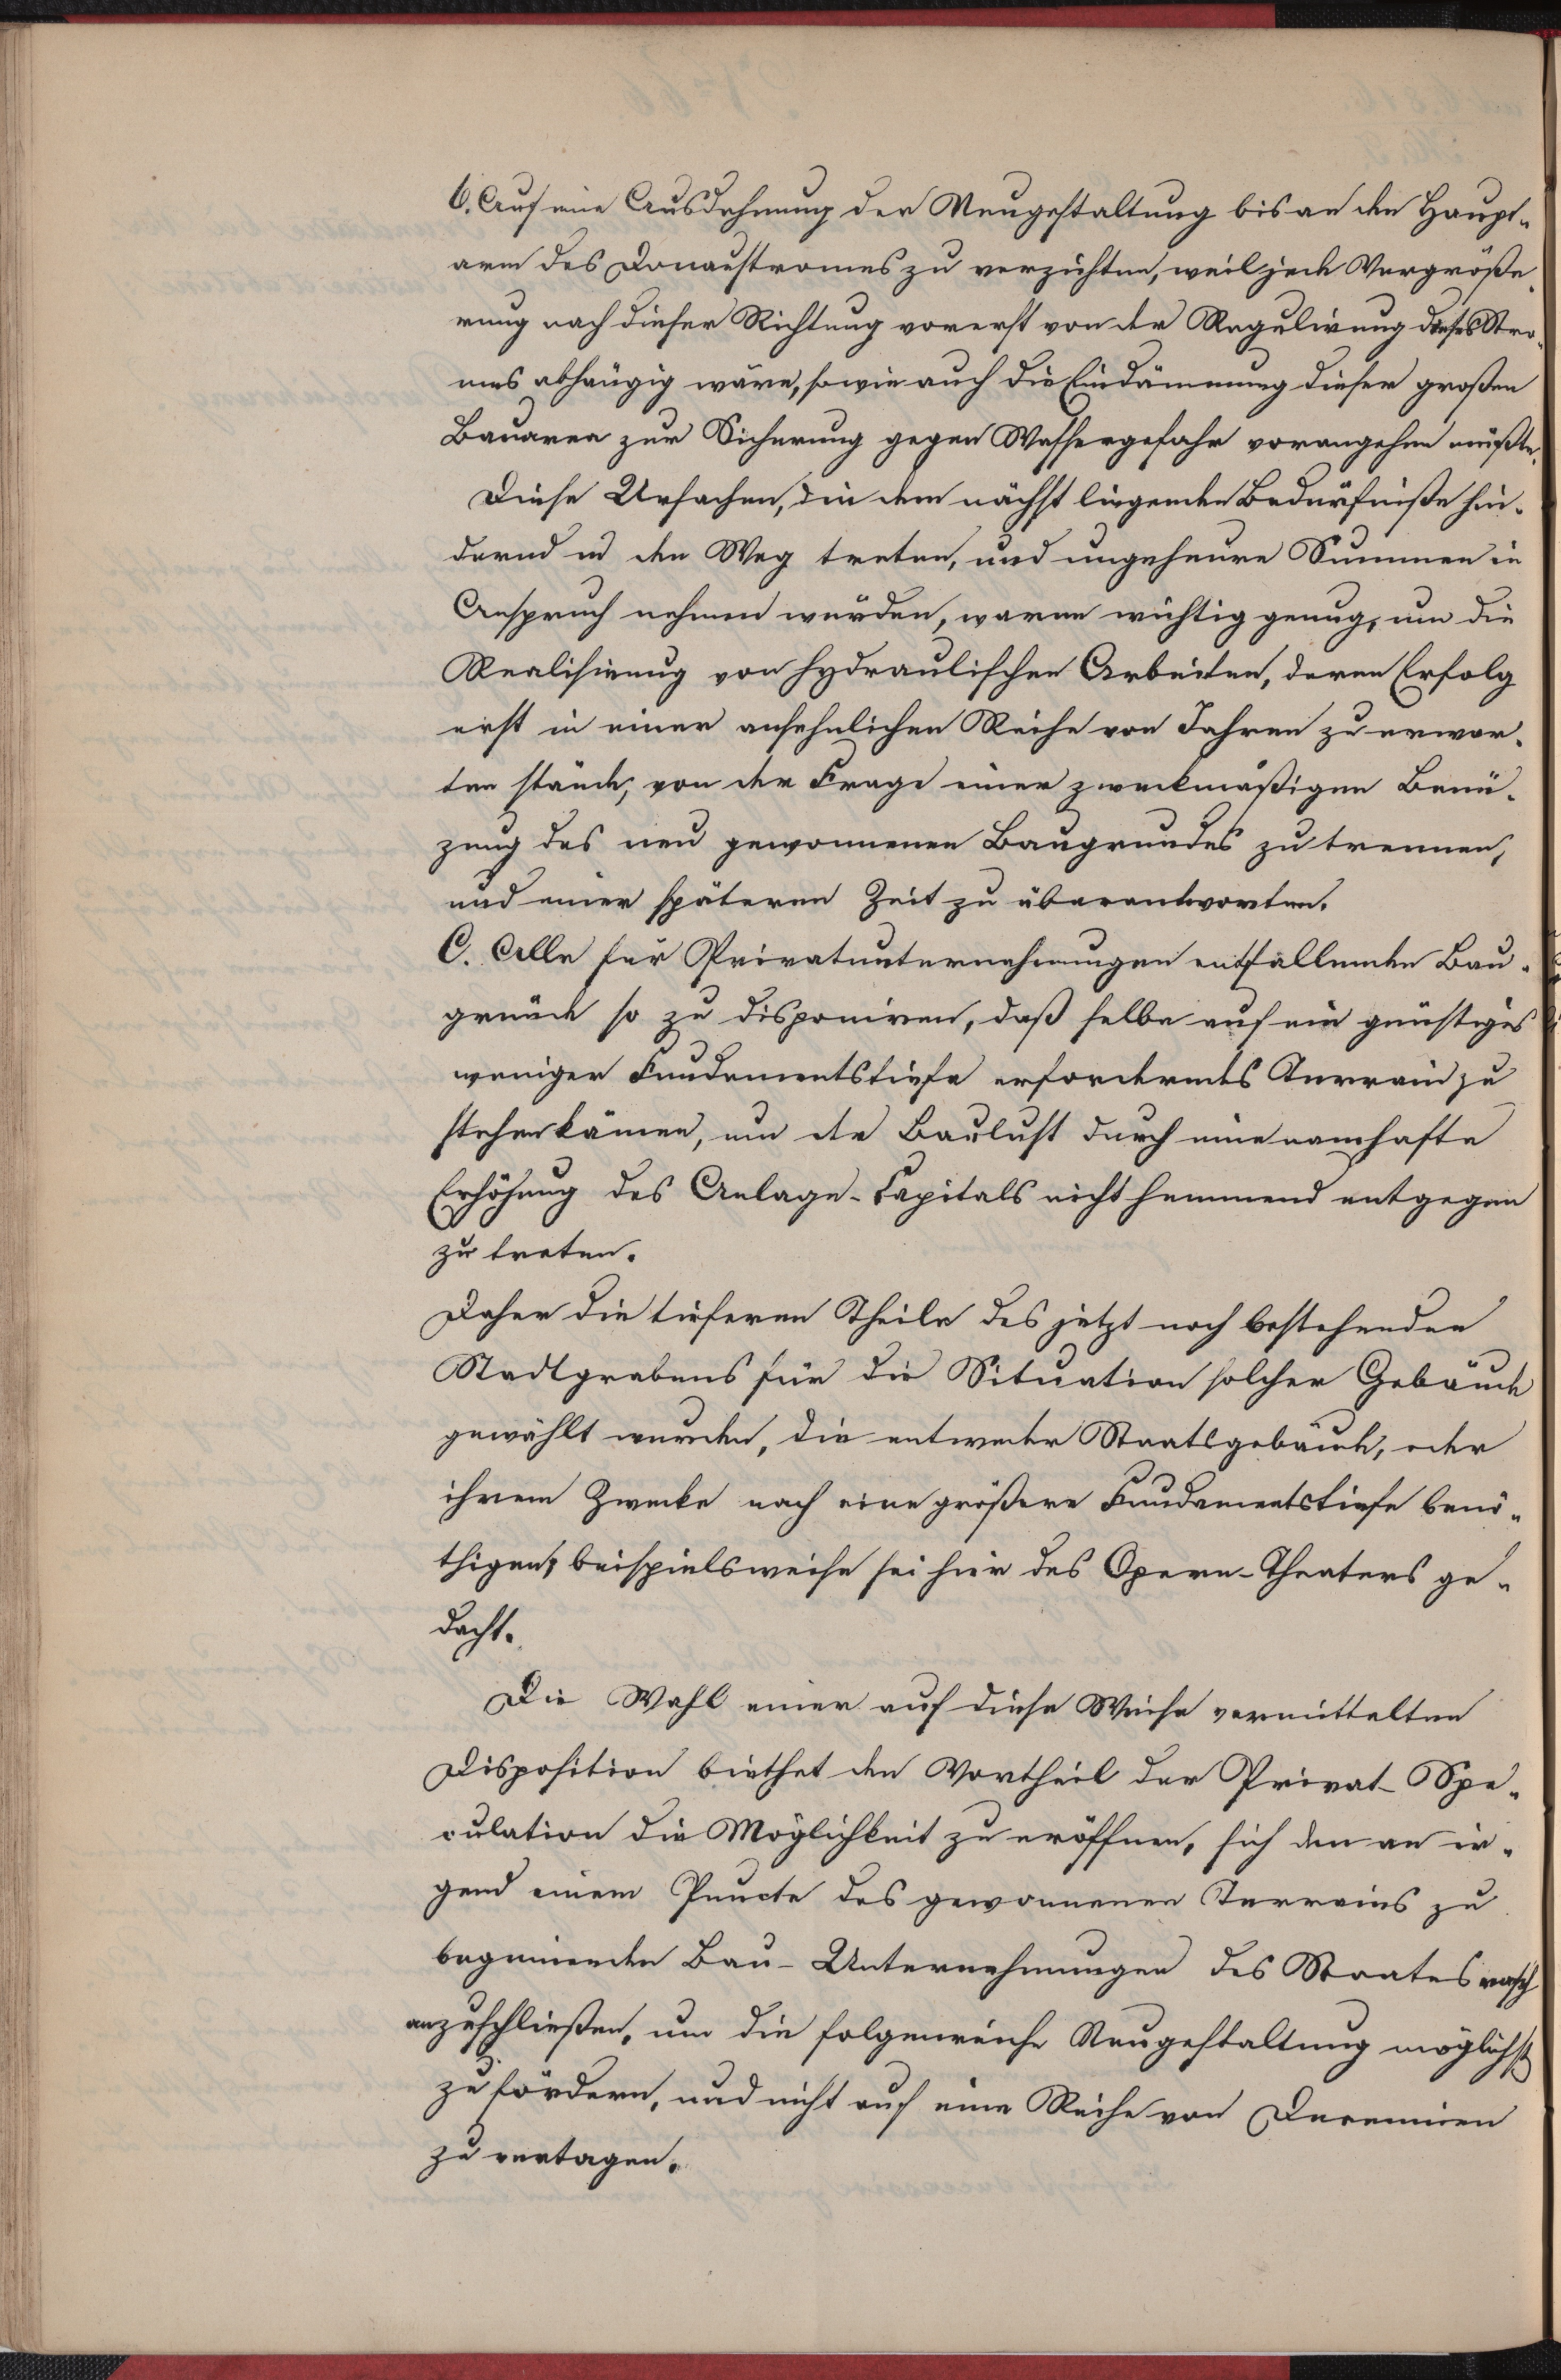 b. Auf eine Ausdehnung der Neugestaltung bis an den Haupt-
arm des Donaustromes zu verzichten, weil jede Vergröße-
rung nach dieser Richtung vorerst von der Regulirung dieses Stro-
mes abhängig wäre, sowie auch die Eindämmung dieser großen
Bauarea zur Sicherung gegen Wassergefahr vorangehen müßte.
Diese Ursachen, die dem nächst liegenden Bedürfniße hin-
dernd in den Weg treten, und ungeheure Summen in
Anspruch nehmen würden, waren wichtig genug, um die
Realisirung von hydraulischen Arbeiten, deren Erfolg
erst in einer ansehnlichen Reihe von Jahren zu erwar-
ten stände, von der Frage einer zweckmäßigen Benü-
zung des neu gewonnenen Baugrundes zu trennen,
und einer späteren Zeit zu überantworten.
C. Alle für Privatunternehmungen entfallenden Bau-
gründe so zu disponiren, daß selbe auf ein günstiges
weniger Fundamentstiefe erforderndes Terrain zu
stehen kämen, um der Baulust durch eine namhafte
Erhöhung des Anlage-Capitals nicht hemmend entgegen
zu treten.
Daher die tieferen Theile des jetzt noch bestehenden
Stadtgrabens für die Situation solcher Gebäude
gewählt wurden, die entweder Staatsgebäude, oder
ihrem Zwecke nach eine größere Fundamentstiefe benö-
thigen; beispielsweise sei hier des Opern-Theaters ge-
dacht.
Die Wahl einer auf diese Weise vermittelten
Disposition biethet den Vortheil der Privat-Spe-
culation die Möglichkeit zu eröffnen, sich den an ir-
gend einem Puncte des gewonnenen Terrains zu
beginnenden Bau-Unternehmungen des Staates rasch
anzuschließen, um die folgenreiche Neugestaltung möglichst
zu fördern, und nicht auf eine Reihe von Decennien
zu vertagen.